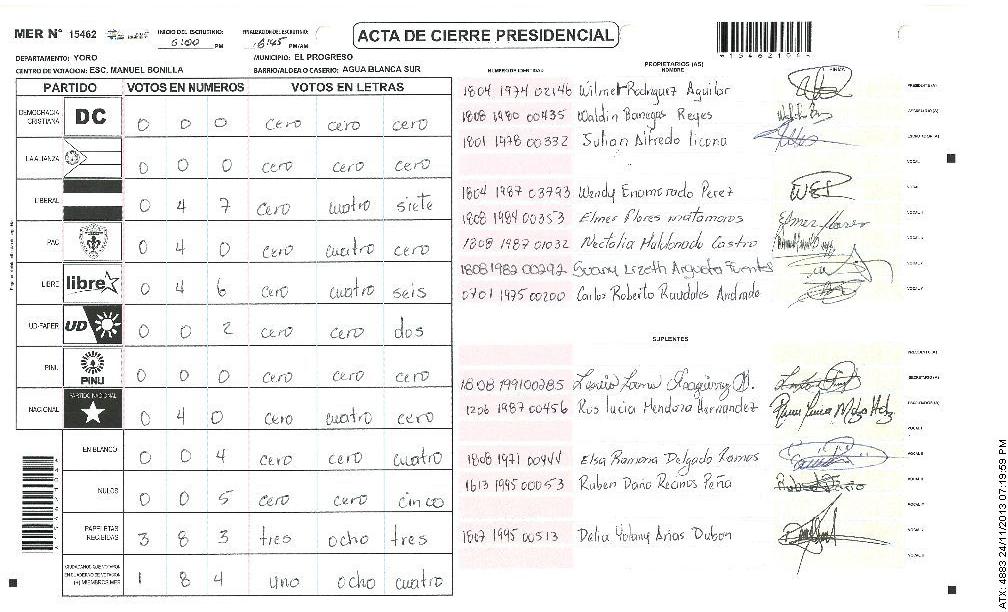 MER N° 15462 INICIO DEL ESCRUTINIO: 6:00 PM FINALIZACION DEL ESCRUTINIO: 6:45 PM/AM
ACTA DE CIERRE PRESIDENCIAL
DEPARTAMENTO: YORO MUNICIPIO: EL PROGRESO
CENTRO DE VOTACION: ESC. MANUEL BONILLA BARRIO/ALDEA O CASERIO: AGUA BLANCA SUR
PARTIDO VOTOS EN NUMEROS VOTOS EN LETRAS
DEMOCRACIA CRISTIANA DC 0 0 0 cero cero cero
LA ALIANZA 0 0 0 cero cero cero
LIBERAL 0 4 7 cero cuatro siete
PAC 0 4 0 cero cuatro cero
LIBRE libre 0 4 6 cero cuatro seis
UD-FAPER UD 0 0 2 cero cero dos
PINU PINU 0 0 0 cero cero cero
NACIONAL PARTIDO NACIONAL 0 4 0 cero cuatro cero
EN BLANCO 0 0 4 cero cero cuatro
NULOS 0 0 5 cero cero cinco
PAPELETAS RECIBIDAS 3 8 3 tres ocho tres
CIUDADANOS QUE VOTARON EN CUADERNO DE VOTACION (+) MIEMBROS MER 1 8 4 uno ocho cuatro
PROPIETARIOS (AS)
NUMERO DE IDENTIDAD NOMBRE FIRMA
1804 1974 02146 Wilmer Rodriguez Aguilar PRESIDENTE (A)
1808 1980 00435 Waldin Banegas Reyes SECRETARIO (A)
1801 1978 00332 Julian Alfredo Licona ESCRUTADOR (A)
VOCAL
1804 1987 03793 Wendy Enamorado Perez WEP
1808 1984 00353 Elmer Flores matamoros Elmer Flores
1808 1987 01032 Nectalia Maldonado Castro
1808 1982 00292 Suany Lizeth Argueta Fuentes
0701 1975 00200 Carlos Roberto Raudales Andrade
SUPLENTES
PRESIDENTE (A)
1808 1991 00285 SECRETARIO (A)
1206 1987 00456 Rus lucia Mendoza Hernandez ESCRUTADOR (A)
1808 1971 00444 Elsa Ramona Delgado Ramos
1613 1995 00053 Ruben Dario Recinos Peña
1807 1995 00513 Delia Yolany Arias Dubon
ATX: 4883 24/11/2013 07:19:59 PM